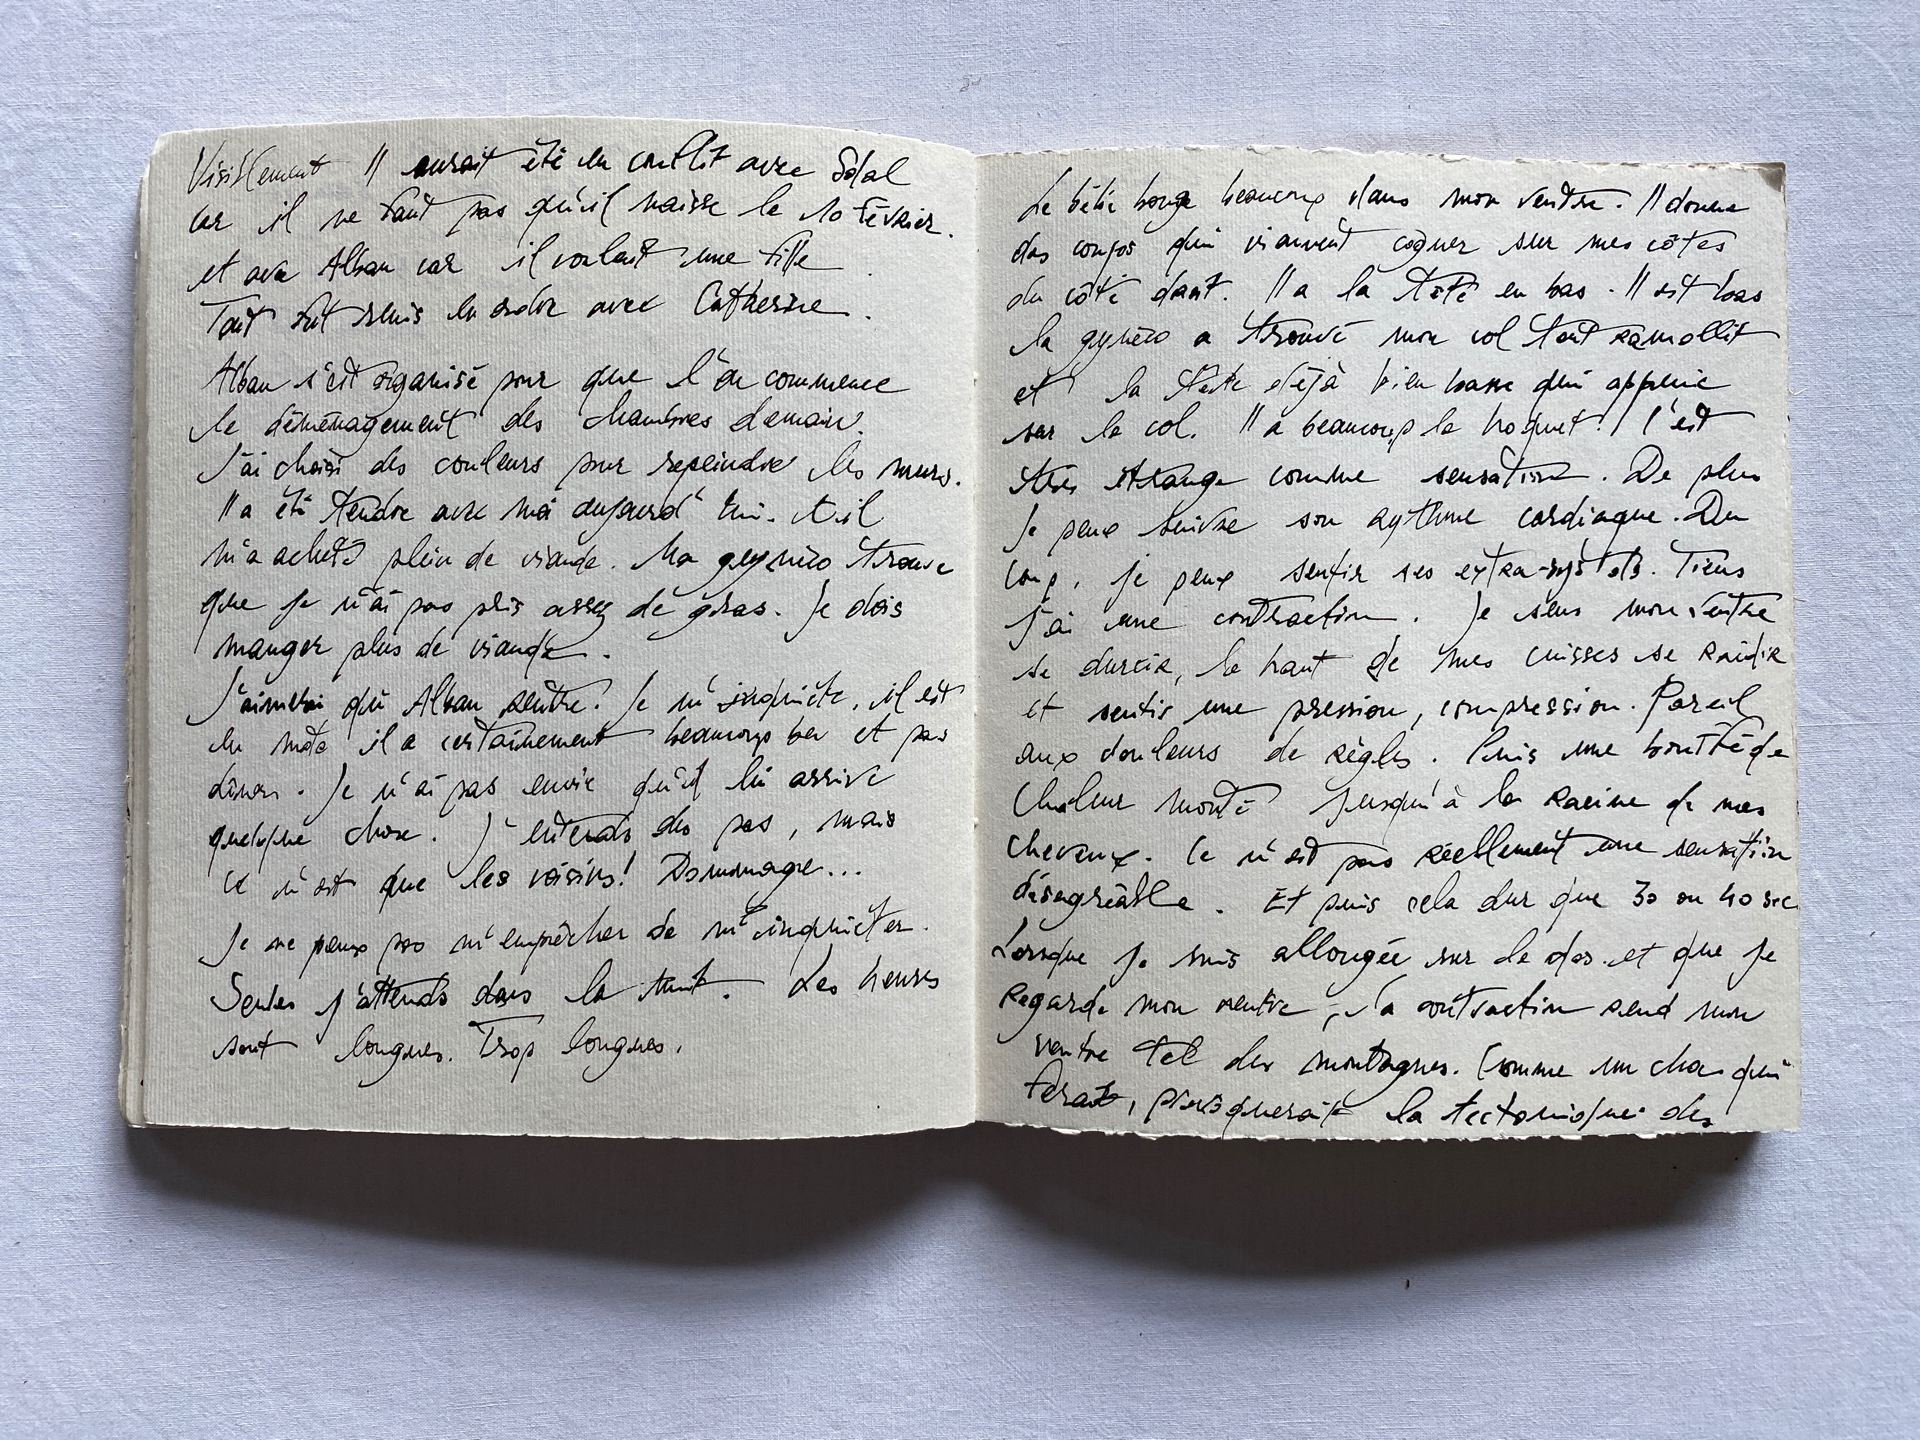 Visiblement Il aurait été en conflit avec Solal
car il ne faut pas qu'il naisse le 10 février.
et avec Alban car il voulait une fille
Tout fut remis en ordre avec Catherine.
Alban s'est organisé pour que l'on commence
le déménagement des chambres demain.
J'ai choisi des couleurs pour repeindre les murs.
Il a été tendre avec moi aujourd'hui. Et il
m'a acheté plein de viande. Ma gynéco trouve
que je n'ai pas pris assez de gras. Je dois
manger plus de viande.
J'aimerai que Alban rentre. Je m'inquiète, il est
en moto il a certainement beaucoup bu et pas
dîner. Je n'ai pas envie qu'il lui arrive
quelque chose. J'entends des pas, mais
ce n'est que les voisins! Dommage...
Je ne peux pas m'empêcher de m'inquiéter.
Seules j'attends dans la nuit. Les heures
sont longues. Trop longues.
Le bébé bouge beaucoup dans mon ventre. Il donne
des coups qui viennent cogner sur mes côtes
du côté droit. Il a la tête en bas. Il est bas
la gynéco a trouvé mon col tout ramollit
et la tête déjà bien basse qui appuie
sur le col. Il a beaucoup le hoquet! C'est
très étrange comme sensation. De plus
je peux suivre son rythme cardiaque. Du
coup, je peux sentir ses extra-systols. Tiens
j'ai une contraction. Je sens mon ventre
se durcir, le haut de mes cuisses se raidir
et sentir une pression, compression. Pareil
aux douleurs de règles. Puis une bouffée de
Chaleur monte jusqu'à la racine de mes
cheveux. Ce n'est pas réellement une sensation
désagréable. Et puis cela dur que 30 ou 40 sec
Lorsque je suis allongée sur le dos et que je
regarde mon ventre, la contraction rend mon
ventre tel des montagnes. Comme un chat qui
ferait, la tectonique des